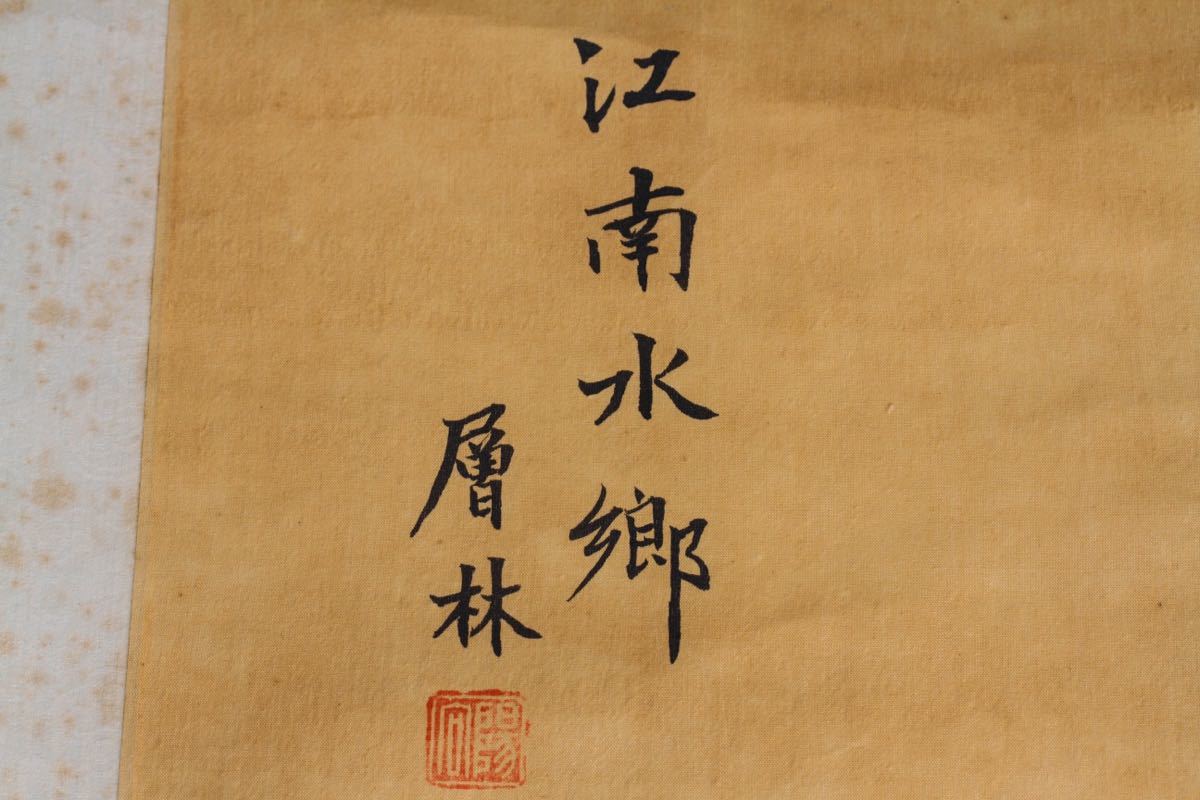 江南水鄉
層林